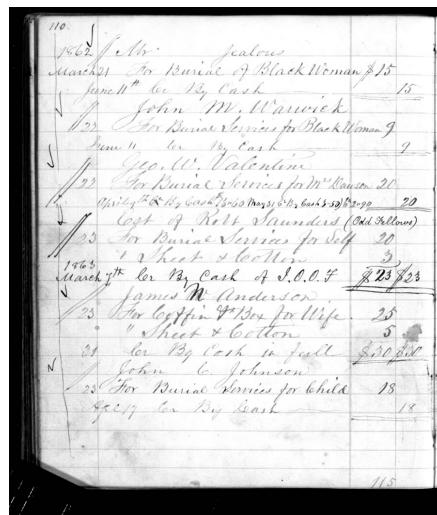 110.
1862 Mr. Jealous
March 21 For Burial of Black Woman $15
June 11th Cr By Cash 15
John M. Warwick
22 For Burial Services for Black Woman 9
June 11 Cr By Cash 9
Geo. W. Valentine
22 For Burial Services for Mrs Dawson 20
April 9th Cr By Cash May 31st By Cash 20
Est of Robt Saunders (Odd Fellows)
23 For Burial Services for Self 20
" Sheet & Cotton 3
1863
March 7th Cr By Cash of I.O.O.F $23 $23
James W Anderson
23 For Coffin & Box for Wife 25
" Sheet & Cotton 5
31 Cr By Cash in full $30 $30
John C. Johnson
23 For Burial Services for Child 18
Apl 17 Cr By Cash 18
115